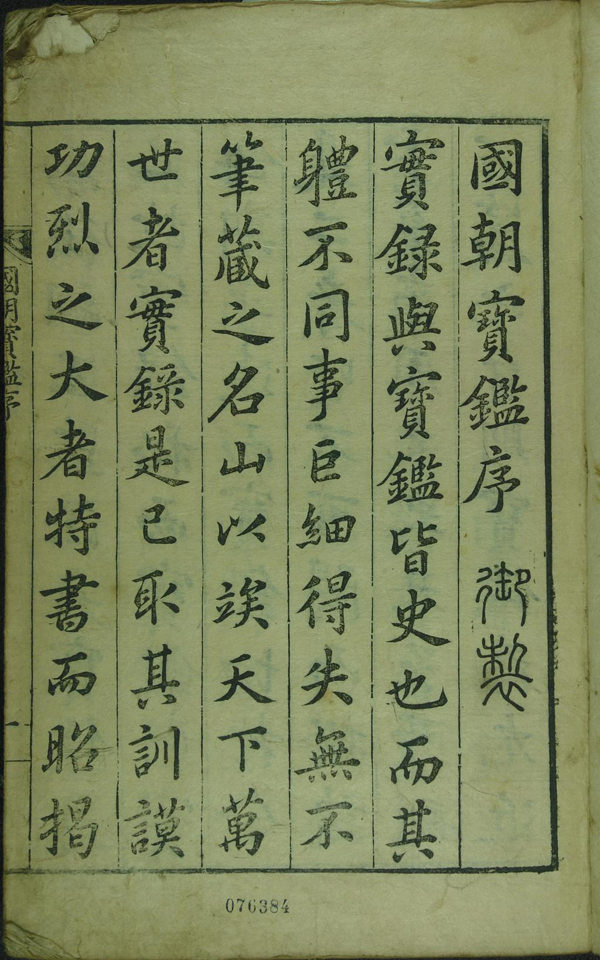 國朝寶鑑序 御製
實錄與寶鑑皆史也而其
軆不同事巨細得失無不
筆藏之名山以竢天下萬
世者實錄是已取其訓謨
功烈之大者特書而昭揭
國朝寶鑑序
一
076384